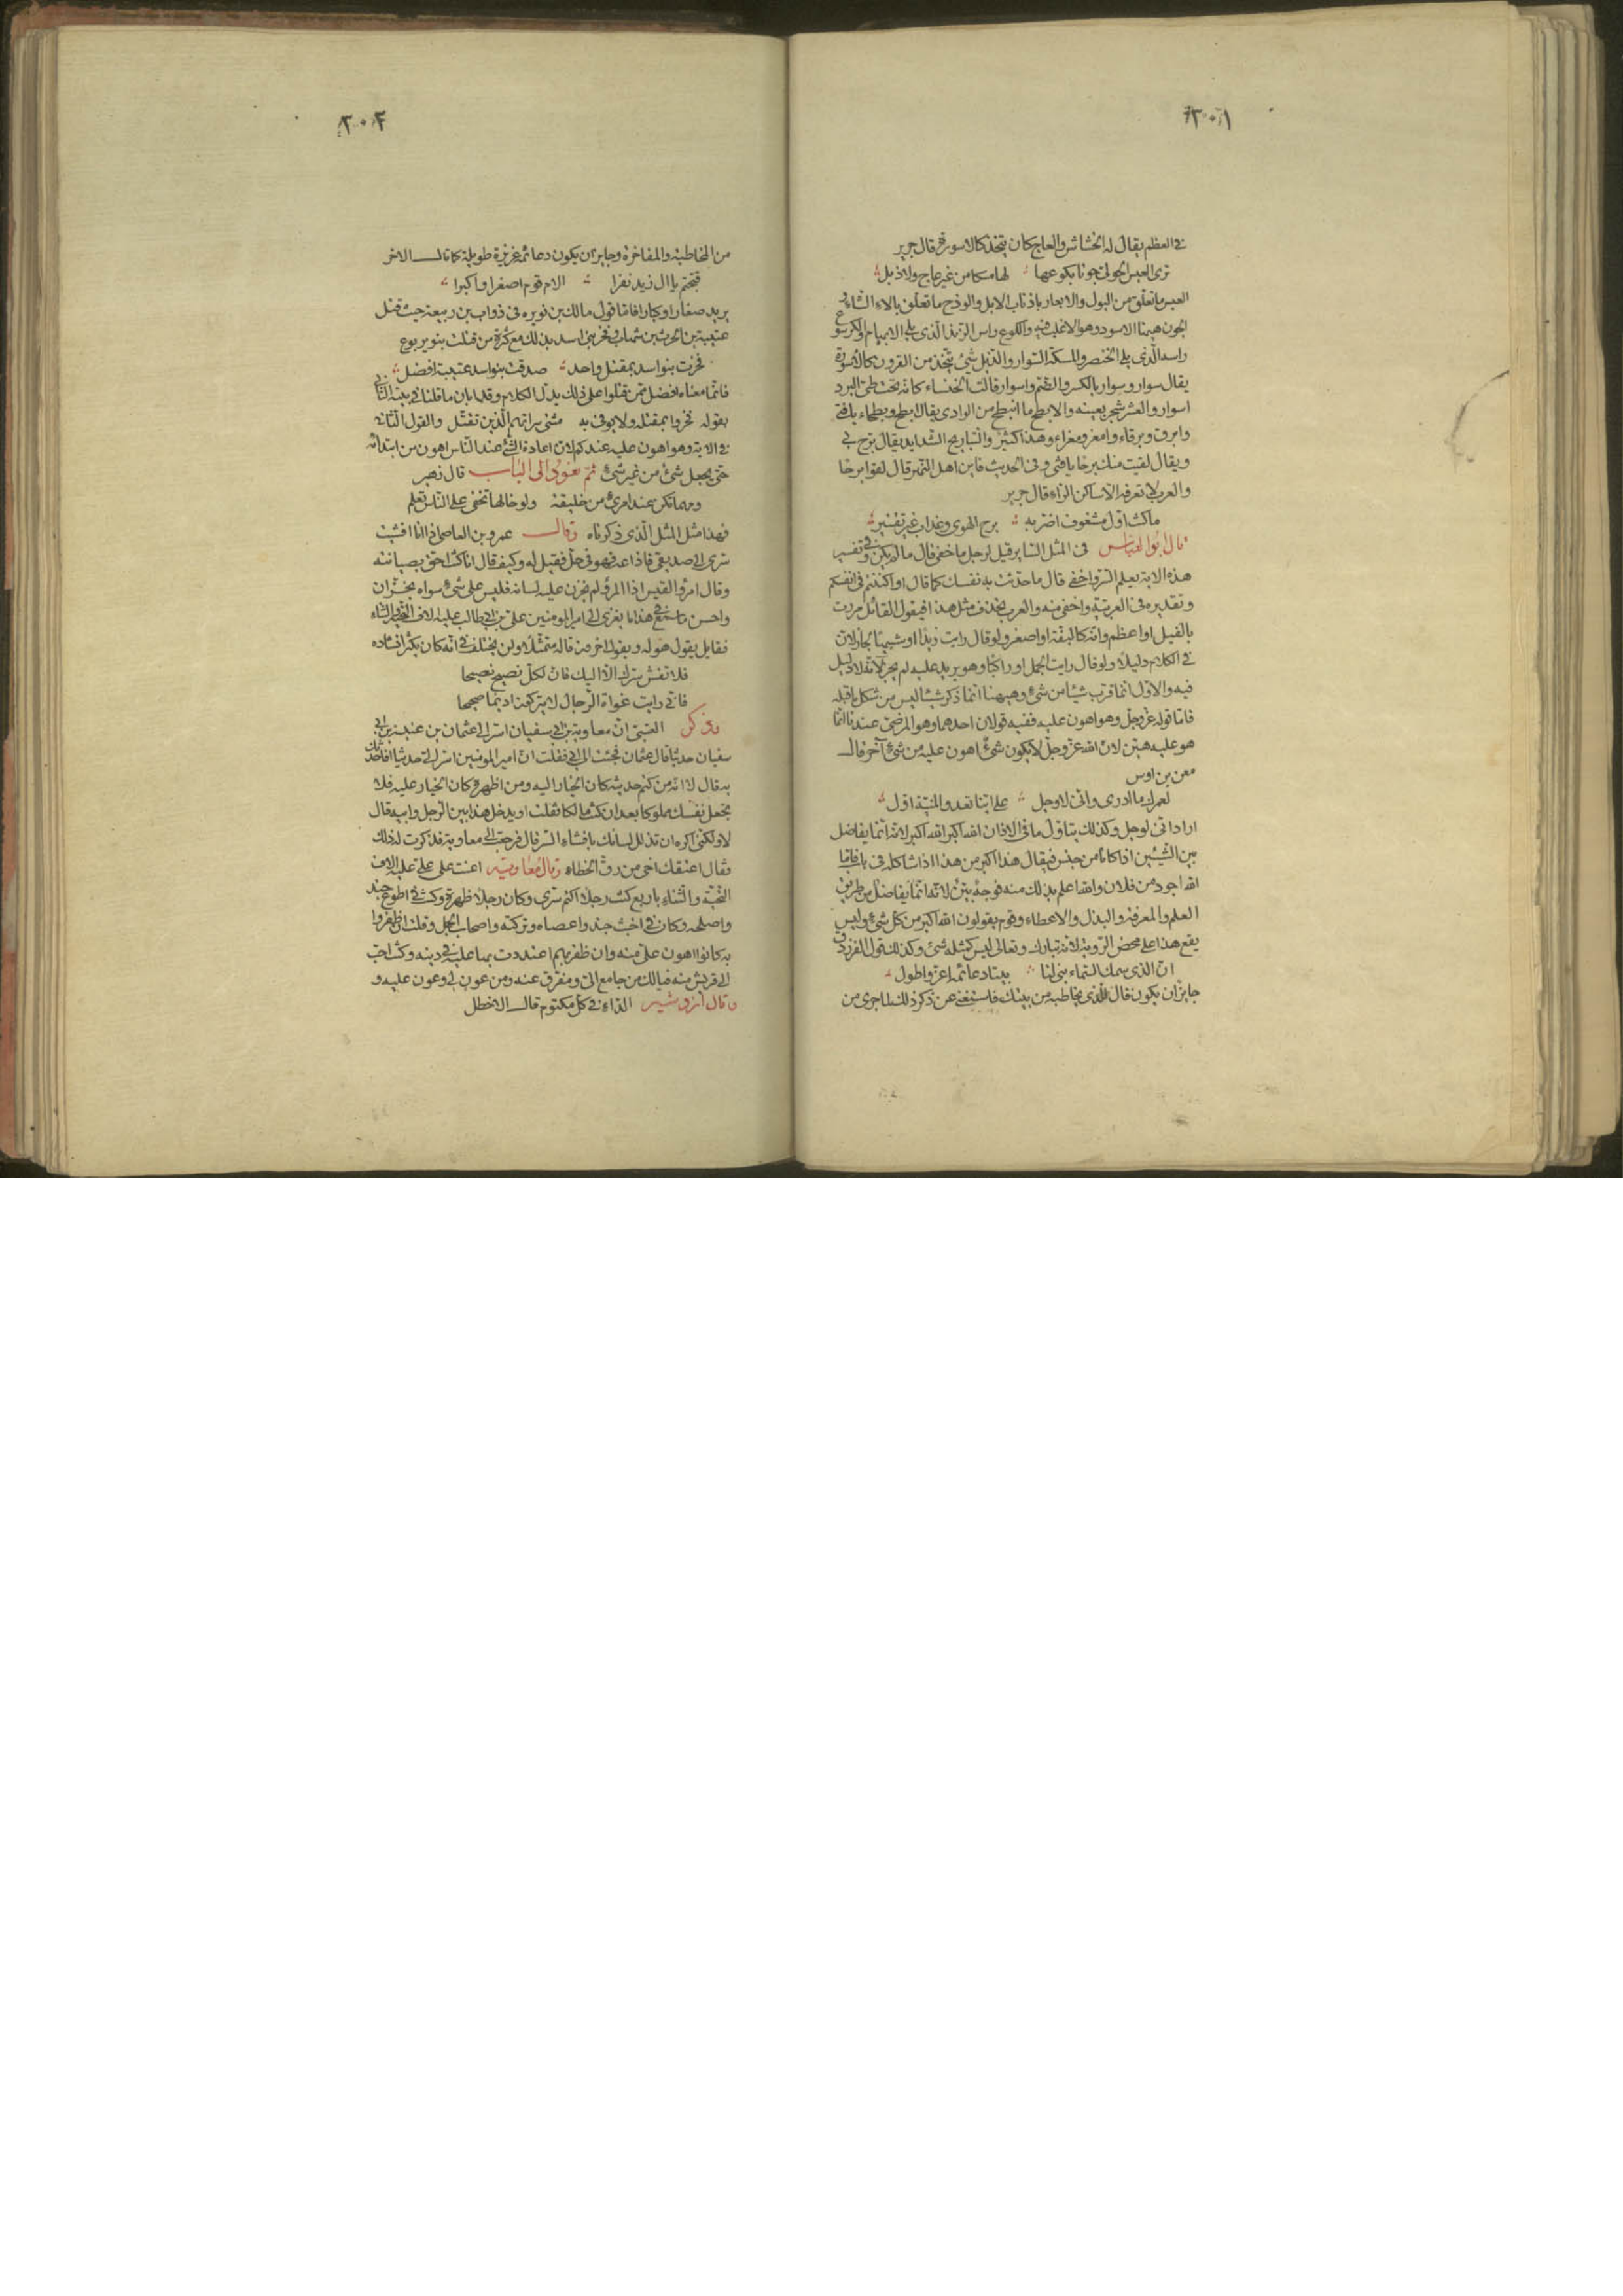 ٣٠١
في العظم يقال له الخشاش والعاج كان يتخذ كالاسورة قال جرير
ترى العبس الحولى جونا بكوعها لها مسكا من غير عاج ولا ذبل
العبس ما تعلق من البول والابعار باذناب الابل والوذح ما تعلق بالاء الشاء و
الجون ههنا الاسود وهو الاغلب فيه والكوع راس الزند الذى يلى الابهام والكرسوع
راسه الذى يلى الخنصر والمسكة السوار والذبل شئ يتخذ من القرون كالاسورة
يقال سوار وسوار بالكسر والضم واسوار قالت الخنساء كانه تحت طى البرد
اسوار والعشر شجر بعينه والابطح ما انبطح من الوادى يقال ابطح وبطحاء يافتى
وابرق وبرقاء وامعز ومعزاء وهذا كثير والتباريح الشدايد يقال برح بى
ويقال لقيت منك برحا يافتى وفى الحديث فاين اهل النهر قال لقوا برحا
والعرب لا تعرفه الا ساكن الراء قال جرير
ماكنت اول مشغوف اضر به برح الهوى وعذاب غير تفتير
قال ابو العباس فى المثل السا ير قيل لرجل ما خفى قال ما لم يكن وفى تفسير
هذه الاية يعلم السر واخفى قال ما حدثت به نفسك كما قال او اكننتم فى انفسكم
وتقديره فى العربية واخفى منه والعرب تحذف مثل هذا فيقول القائل مررت
بالفيل او اعظم وانه كالبقة او اصغر ولو قال رايت زيدا او شبيها لجاز لان
فى الكلام دليلا ولو قال رايت الجمل او راكبا وهو يريد عليه لم يجز لانه لا دليل
فيه والاول انما قرب شيئا من شئ وههنا انما ذكر شيئا ليس من شكل ما قبله
فاما قوله عز وجل وهو اهون عليه ففيه قولان احدهما وهو المرضى عندنا انما
هو عليه هين لان الله عز وجل لا يكون شئ اهون عليه من شئ آخر قال
معن بن اوس
لعمرك ما ادرى وانى لاوجل على ايّنا تعدو المنية اول
اراد انى لوجل وكذلك يتاول ما فى الاذان الله اكبر الله اكبر لانه انما يفاضل
بين الشيئين اذا كانا من جنس فيقال هذا اكبر من هذا اذا شاكله فى باب فاما
الله اجود من فلان والله اعلم بذلك منه فوجهه بين لانه انما يفاضل من طريق
العلم والمعرفة والبذل والاعطاء وقوم يقولون الله اكبر من كل شئ وليس
يقع هذا على محض الروية لانه تبارك وتعالى ليس كمثله شئ وكذلك قول الفرزدق
ان الذى سمك السماء بنى لنا بيتا دعائمه اعز واطول
جايز ان يكون قال للذى يخاطبه من بيتك فاستغنى عن ذكر ذلك لما جرى من
٣٠٢
من المخاطبة والمفاخرة وجايز ان يكون دعائمه عزيزة طويلة كما قال الاخر
قبحتم يا ال زيد نفرا الام قوم اصغرا واكبرا
يريد صغارا وكبارا فاما قول مالك بن نويره فى ذواب بن ربيعة حيث قتل
عتيبة بن الحرث بن شهاب وفخر بنى اسد بذلك مع كثرة من قتلت بنو يربوع
فخرت بنو اسد بمقتل واحد صدقت بنو اسد عتيبة افضل
فانما معناه افضل ممن قتلوا على ذلك يدل الكلام وقد ابان ما قلنا فى بيته الثانى
بقوله فخروا بمقتله ولا يوفى به مثنى سراتهم الذين نقتل والقول الثانى
فى الاية وهو اهون عليه عندكم لان اعادة الشئ عند الناس اهون من ابتدائه
حتى يجعل شئ من غير شئ ثم نعود الى الباب قال زهير
ومهما تكن عند امرئ من خليقة ولو خالها تخفى على الناس تعلم
فهذا مثل المثل الذى ذكرناه وقال عمرو بن العاصى اذا انا افشيت
سرى الى صديقى فاذاعه فهو فى حل فقيل له وكيف قال انا كنت احق بصيانته
وقال امرؤ القيس اذا المرؤ لم يخزن عليه لسانه فليس على شئ سواه بخزان
واحسن ما سمع فى هذا ما يعزى الى امير المومنين على بن ابى طالب عليه الاف التحية والثناء
فقايل يقول هو له ويقول اخر من قاله متمثلا ولن يختلف فى انه كان يكثر انشاده
فلا تفش سرك الا اليك فان لكل نصيح نصيحا
فانى رايت غواة الرجال لا يتركون اديما صحيحا
وذكر العتبى ان معاوية بن ابى سفيان اسر الى عثمان بن عنبسة بن ابى
سفيان حديثا قال عثمان فجئت الى ابى فقلت ان امير المومنين اسر الى حديثا افاحدثك
به قال لا انه من كتم حديثه كان الخيار اليه ومن اظهره كان الخيار عليه فلا
تجعل نفسك مملوكا بعد ان كنت مالكا فقلت او يدخل هذا بين الرجل وابيه قال
لا ولكنى اكره ان تذلل لسانك بافشاء السر قال فرجعت الى معاوية فذكرت له ذلك
فقال اعتقك اخى من رق الخطاء وقال معاوية اعنت على على عليه الاف
التحية والثناء باربع كنت رجلا اكتم سرى وكان رجلا ظهرة وكنت فى اطوع جند
واصلحه وكان فى اخبث جند واعصاه وتركته واصحاب الجمل وقلت ان ظفروا
به كانوا اهون على منه وان ظفر بهم اعتددت بها عليه فى دينه وكنت احب
الى قريش منه فيالك من جامع الى ومفرق عنه ومن عون لى وعون عليه و
وقال ازدشير الداء فى كل مكتوم قال الاخطل